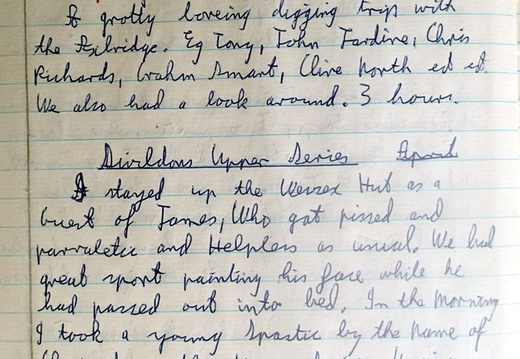 A grotty boreing digging trip with
the Axbridge. Eg Tony, John Jardine, Chris
Richards, Grahm Smart, Clive North ect ect.
We also had a look around. 3 hours.
Swildons Upper Series April
I stayed up the Wessex Hut as a
Guest of James, Who got pissed and
parraletic and Helpless as usual. We had
great sport painting his face while he
had passed out into bed. In the morning
I took a young Spastic by the name of